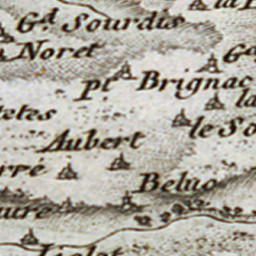 Gd. Sourdis
Noret
Gd
pt. Brignac
la
tetes
Aubert
le So
rré
Beluo
aure